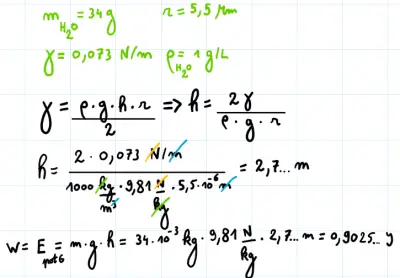 m_H₂O = 34g   r = 5,5 μm
γ = 0,073 N/m   ρ_H₂O = 1 g/L
γ = ρ·g·h·r / 2 => h = 2γ / ρ·g·r
h = 2 · 0,073 N/m / 1000 kg/m³ · 9,81 N/kg · 5,5·10⁻⁶ m = 2,7... m
W = E_pot G = m·g·h = 34·10⁻³ kg · 9,81 N/kg · 2,7... m = 0,9025... J